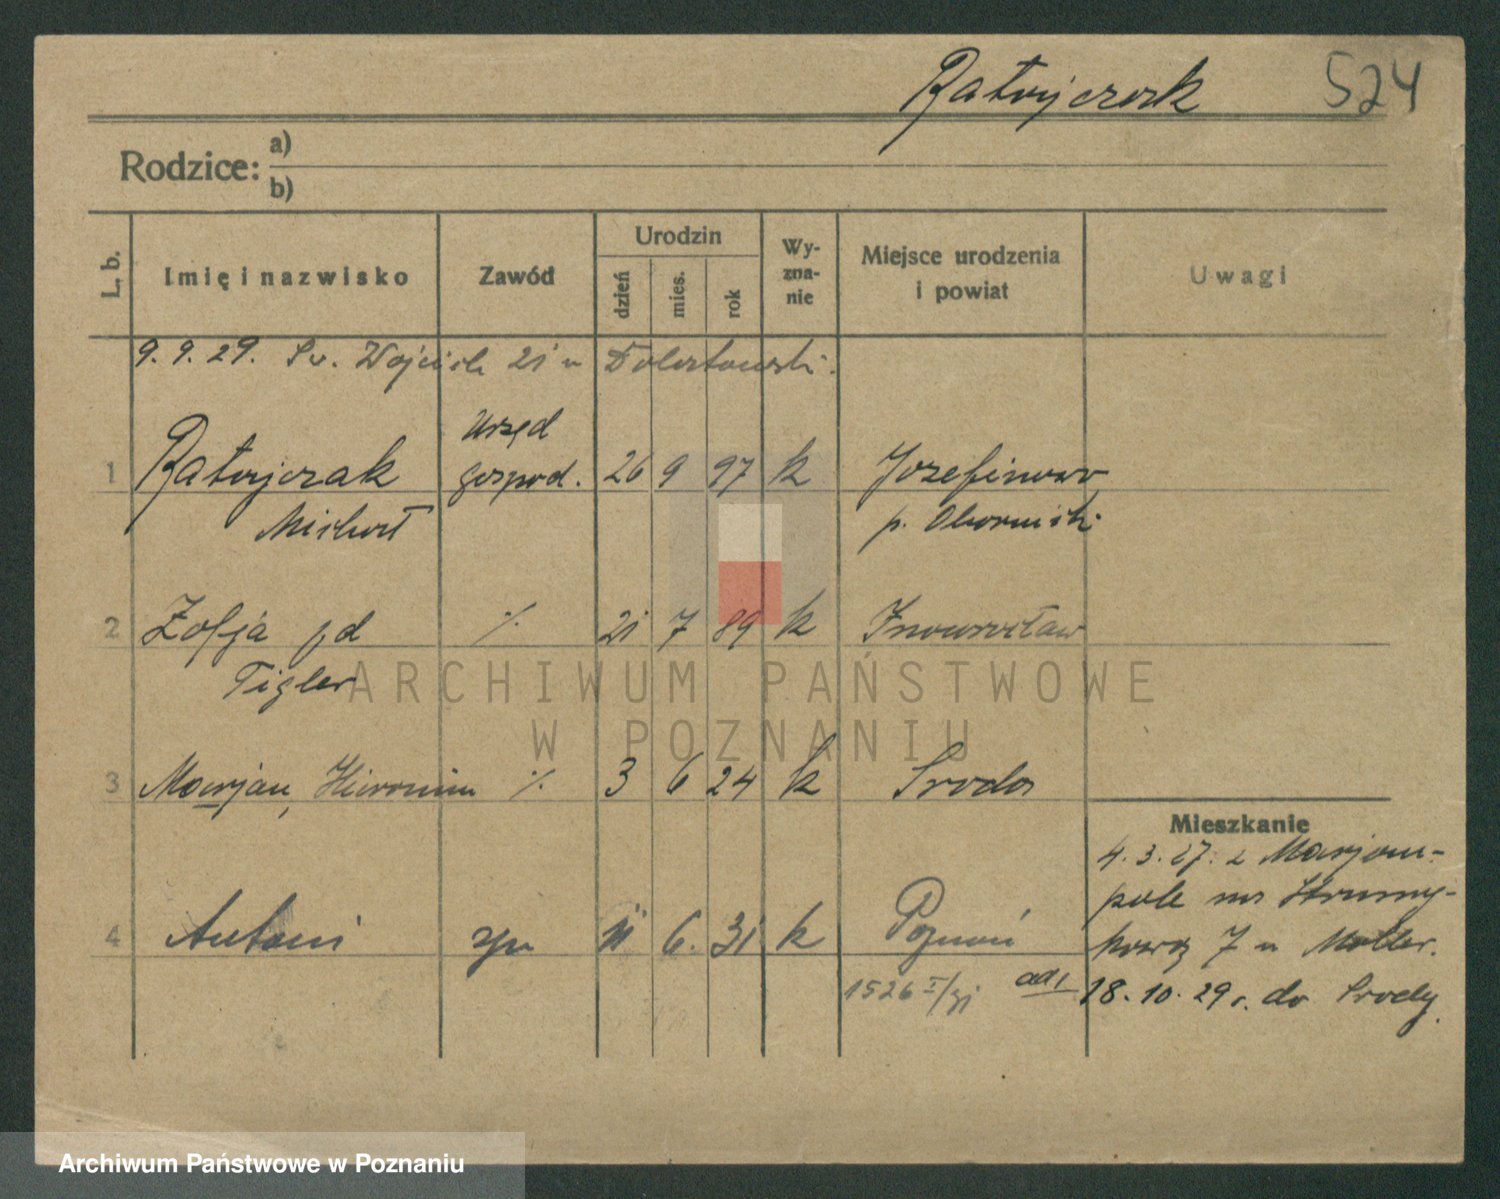 Ratajczak 524
Rodzice: a)
b)
L. b. Imię i nazwisko Zawód Urodzin dzień mies. rok Wy-zna-nie Miejsce urodzenia i powiat Uwagi
9. 9. 29. Św. Wojciech 21 u
1 Ratajczak urzęd gospod. 26 9 97 k Józefinowo
Michał p. Obornicki
2 Zofja zd ./. 21 7 89 k Inowrocław
Tigler
ARCHIWUM PAŃSTWOWE
W POZNANIU
3 Marjan, Hieronim ./. 3 6 24 k Środa
Mieszkanie
4. 3. 27. z Marjan-
pola na Strumy-
4 Antoni syn 11 6. 31 k Poznań
kową 7 u
1526 I/31 ad 1 18. 10. 29 r. do Środy.
Archiwum Państwowe w Poznaniu